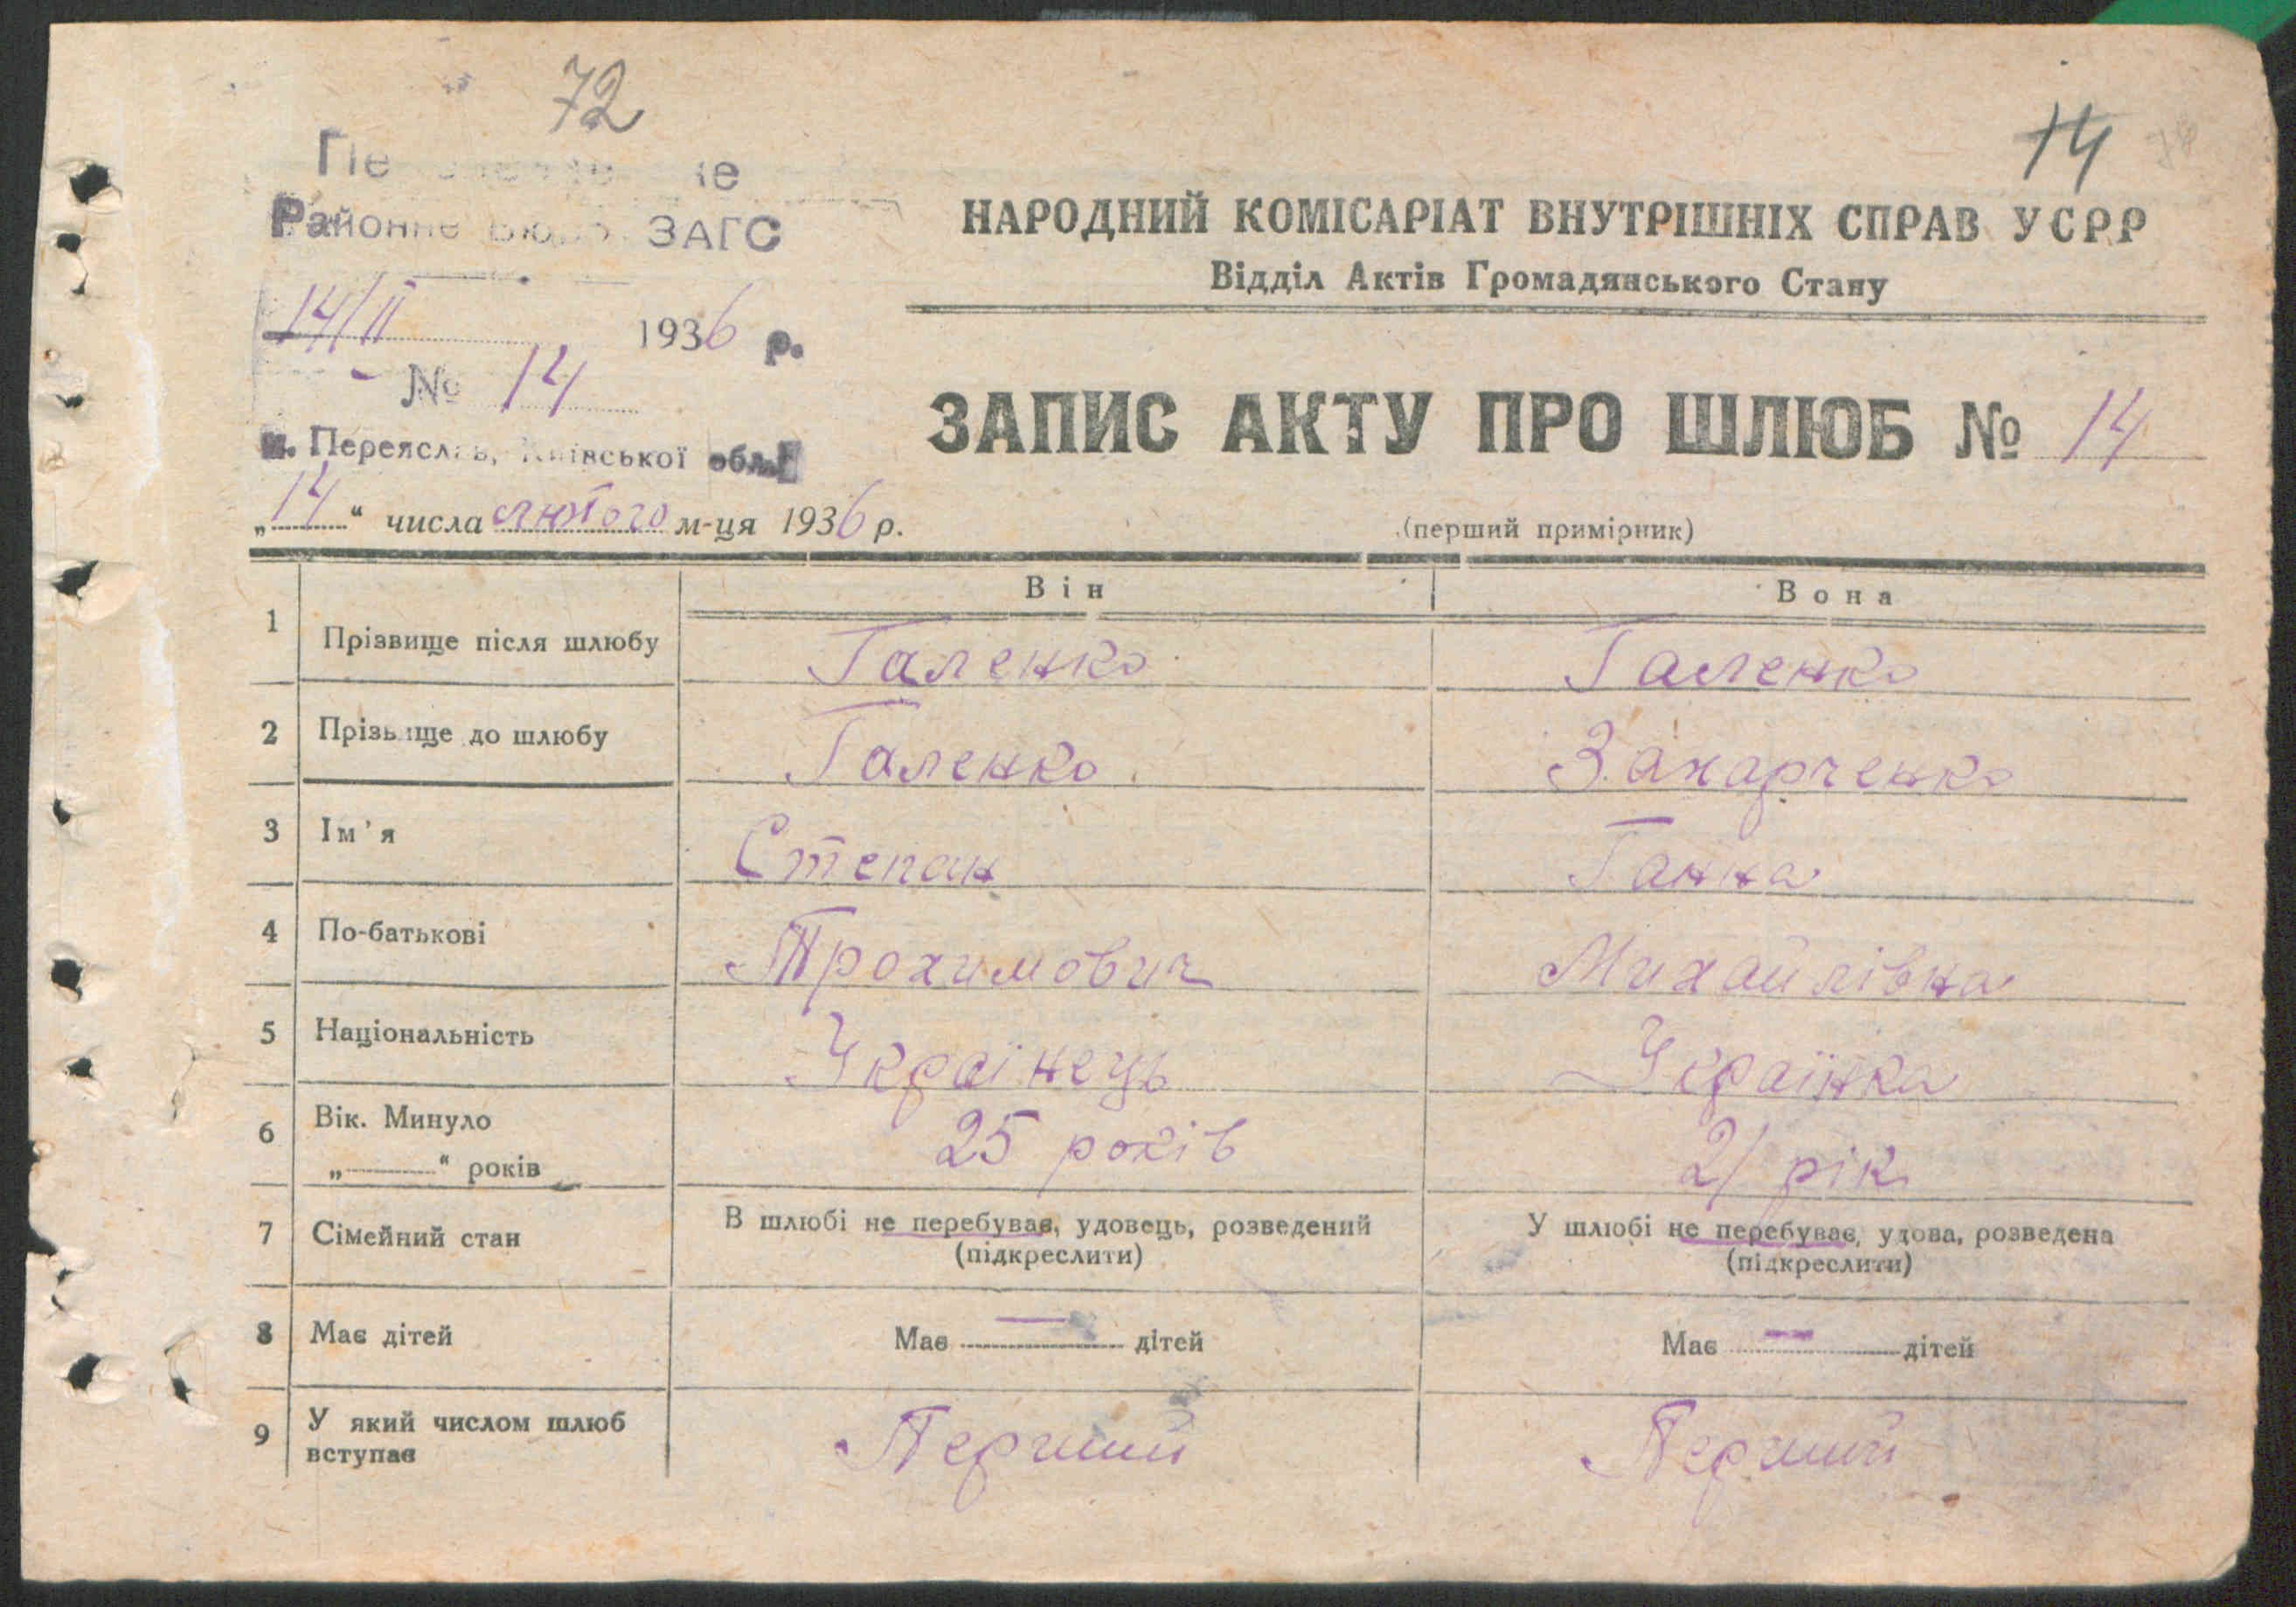 72
14
Районне бюро ЗАГС
14/II 1936 р.
№ 14
м. Переяслав, Київської обл.
„14“ числа лютого м-ця 1936 р.
НАРОДНИЙ КОМІСАРІАТ ВНУТРІШНІХ СПРАВ УСРР
Відділ Актів Громадянського Стану
ЗАПИС АКТУ ПРО ШЛЮБ № 14
(перший примірник)
Він Вона
1 Прізвище після шлюбу Галенко Галенко
2 Прізвище до шлюбу Галенко Захарченко
3 Ім'я Степан Ганна
4 По-батькові Трохимович Михайлівна
5 Національність Українець Українка
6 Вік. Минуло 25 років 21 рік
„ “ років
7 Сімейний стан В шлюбі не перебував, удовець, розведений У шлюбі не перебуває, удова, розведена
(підкреслити) (підкреслити)
8 Має дітей Має — дітей Має — дітей
9 У який числом шлюб Перший Перший
вступає